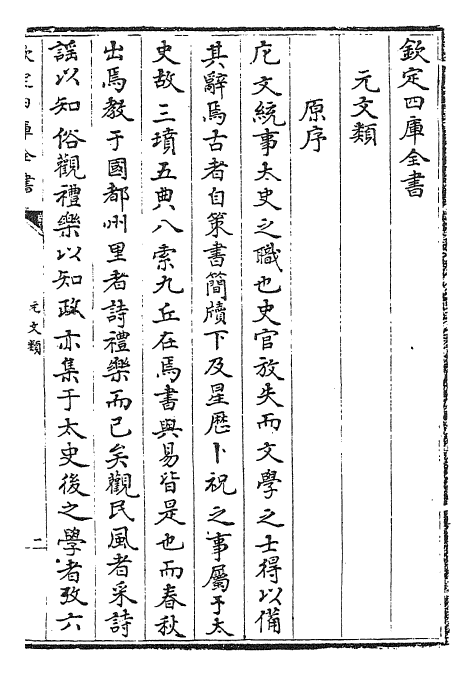 欽定四庫全書
元文類
原序
庀文統事太史之職也史官放失而文學之士得以備
其辭焉古者自策書簡牘下及星歴卜祝之事屬于太
史故三墳五典八索九丘在焉書與易皆是也而春秋
出焉教于國都州里者詩禮樂而已矣觀民風者采詩
謡以知俗觀禮樂以知政亦集于太史後之學者攷六
欽定四庫全書
元文類
二